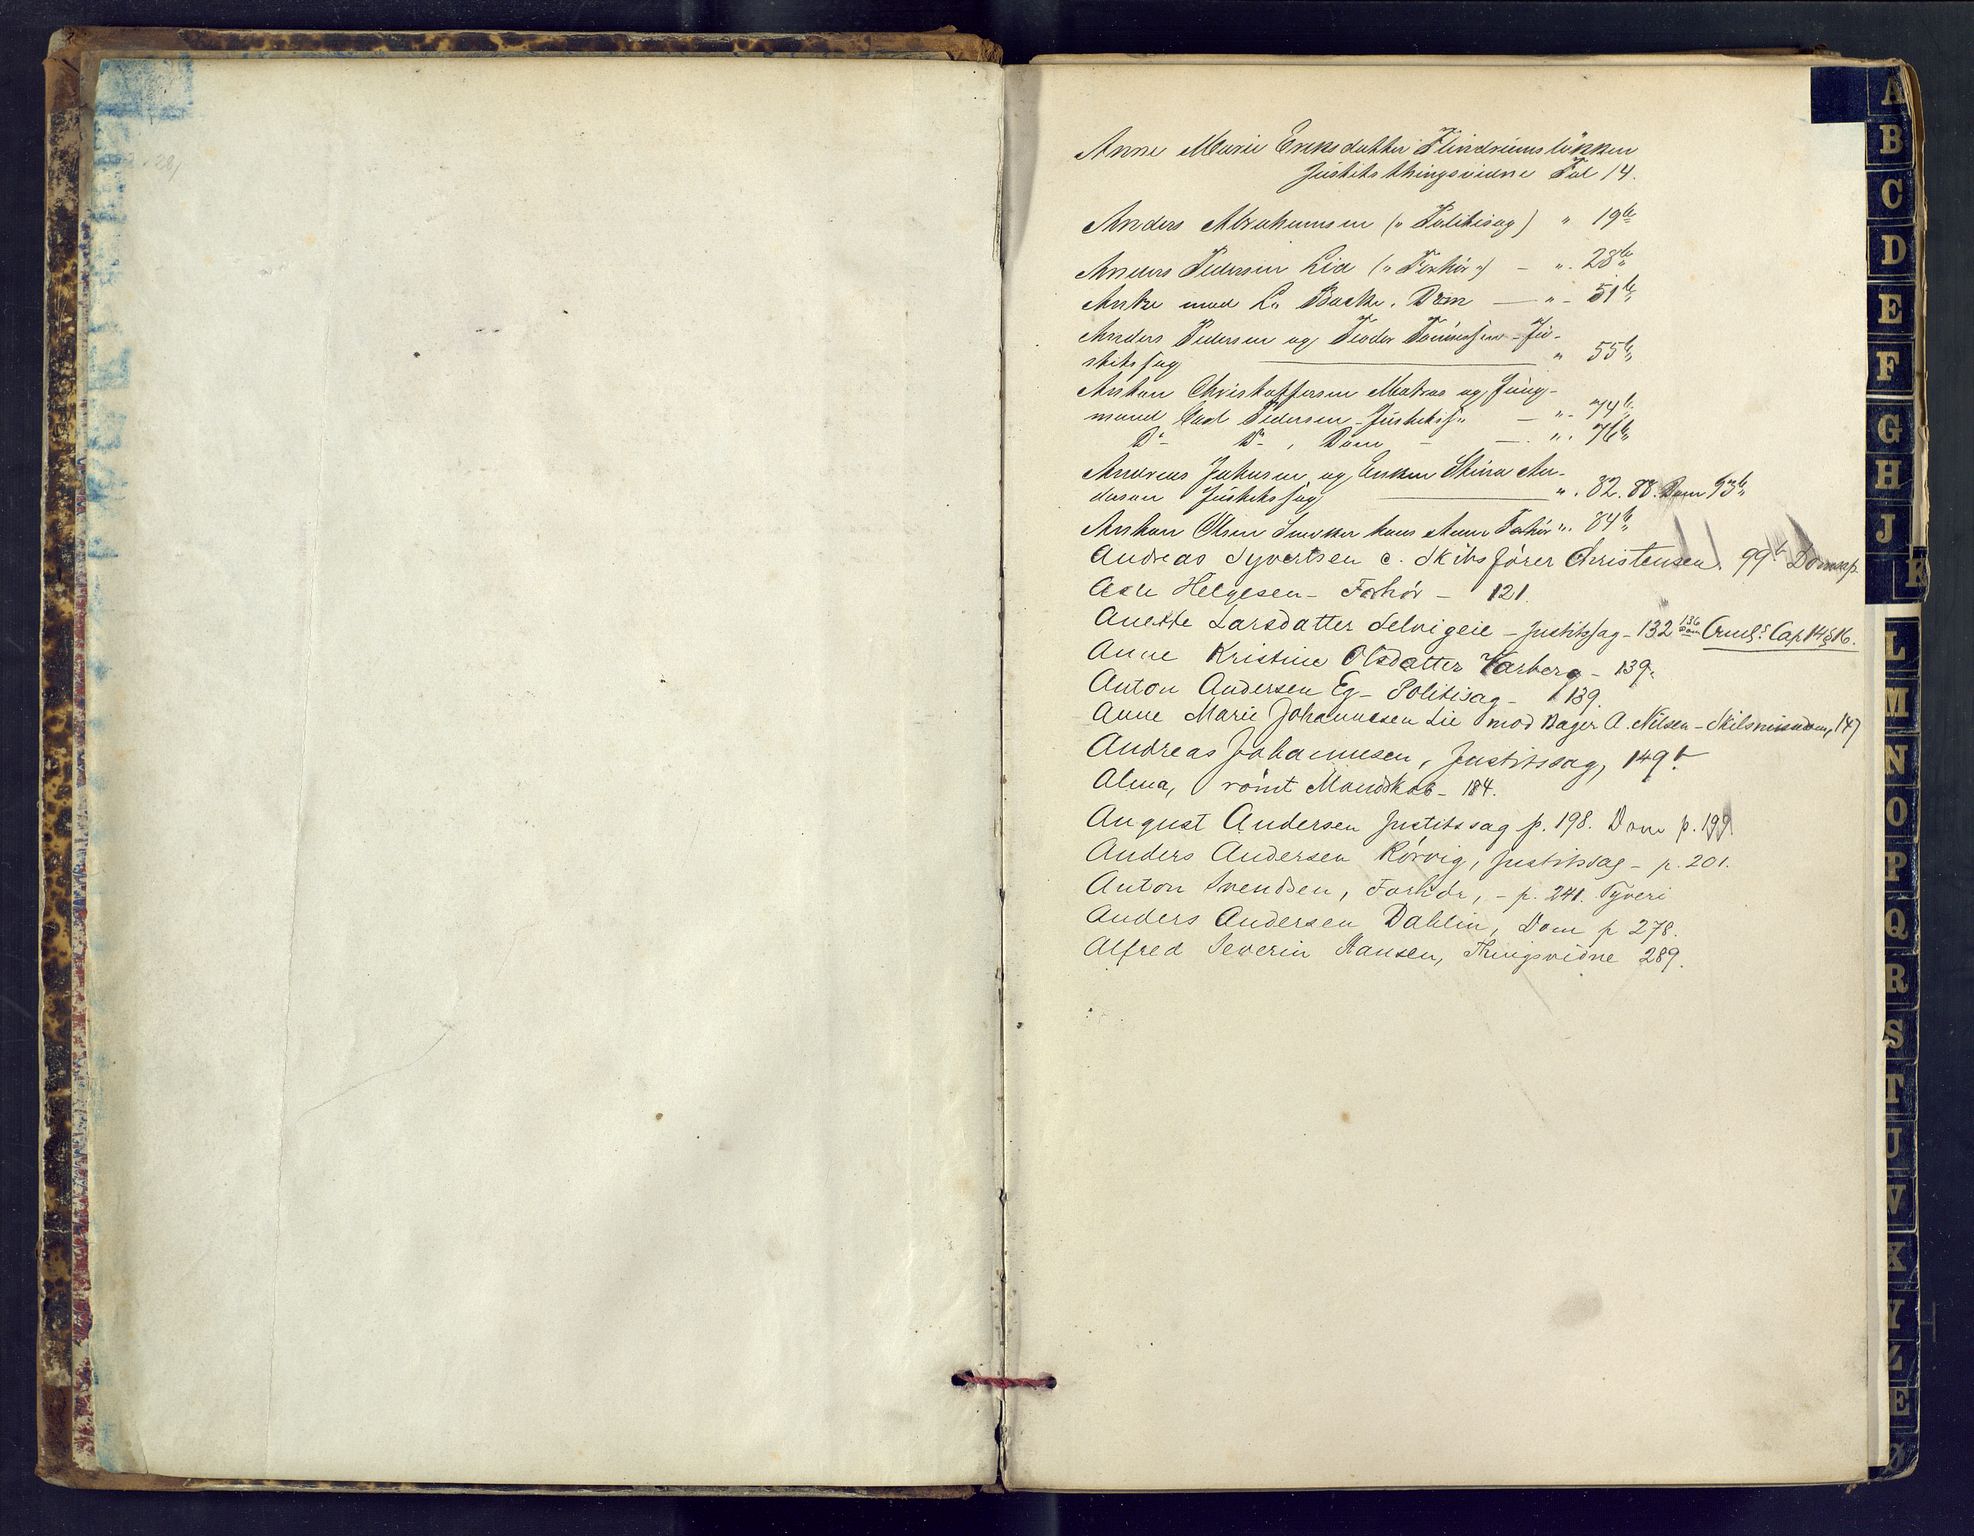 Anne Marie Eriksdatter
Justitsthingsvidne Fol 14.
Anders Abrahamsen (" Politisag) " 19b
Anders Pedersen Lia (" Forhør ") — ". 28b
mod L. Backe. Dom — " - 51b
Anders Pedersen og Teodor Tønnesen - Ju-
stitssag " 55b
Anthon Christoffersen Matros og Jung-
mand Carl Pedersen - Justitss. — ". 74b
Do Do, Dom — ". 76b
Andreas Johnsen og Enken Stina An-
derson Justitssag ". 82. 88. Dom 93b
Anthon Olsen hans Forhør ". 84b
Andreas Syvertsen c. Skibsfører Christensen. 99b
Helgesen - Forhør - 121.
Anette Larsdatter Selvigeie - Justitssag - 132 136 Dom Cap. 14 § 16.
Anne Kristine Olsdatter Varberg - 139.
Anton Andersen Eg - Politisag - 139.
Anne Marie Johannesen Lie mod Bager A. Nilsen - Skilsmissedom, 147
Andreas Johannesen, Justitssag, 149b
Alma, rømt Mandskab - 184.
August Andersen Justitssag p. 198. Dom p. 199
Anders Andersen Rørvig, Justitssag - p. 201.
Anton Svendsen, Forhør, - p. 241. Tyveri
Anders Andersen Dahlin, Dom p 278.
Alfred Severin Hansen, Thingsvidne 289.
A
B
C
D
E
F
G
H
J
K
L
M
N
O
P
Q
R
S
T
U
V
X
Y
Z
Æ
Ø